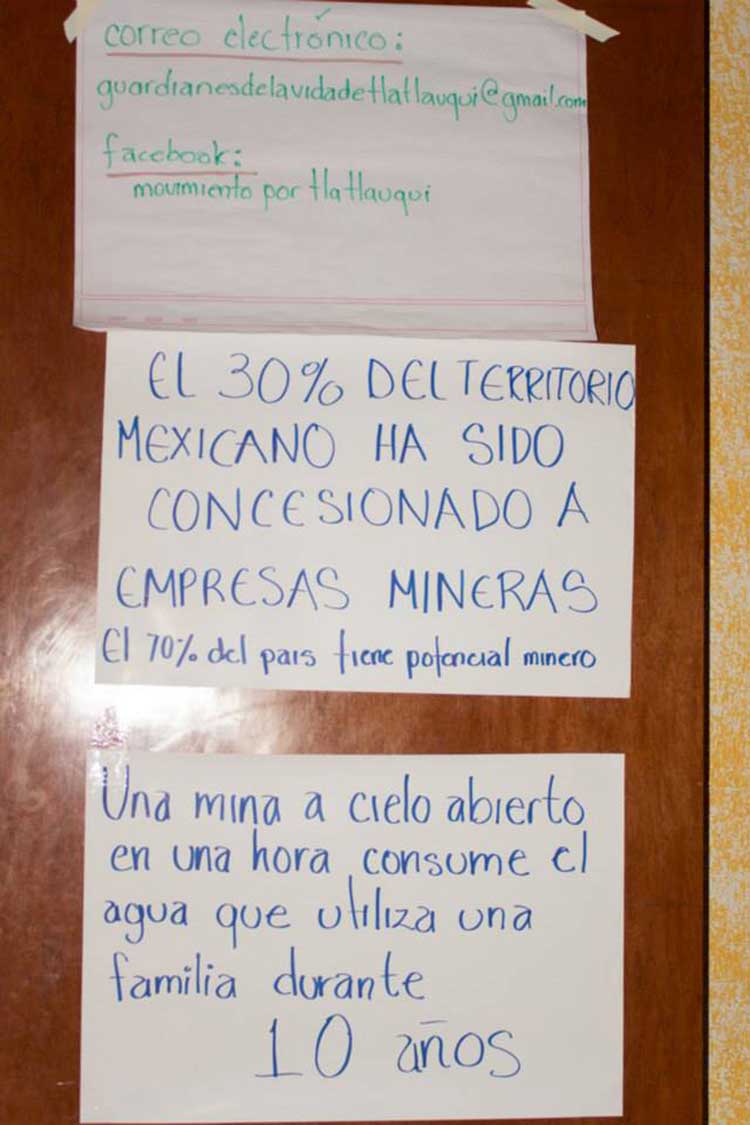 correo electrónico:
guardianesdelavidadetlatlauqui@gmail.com
facebook:
movimiento por tlatlauqui
EL 30% DEL TERRITORIO
MEXICANO HA SIDO
CONCESIONADO A
EMPRESAS MINERAS
El 70% del pais tiene potencial minero
Una mina a cielo abierto
en una hora consume el
agua que utiliza una
familia durante
10 años